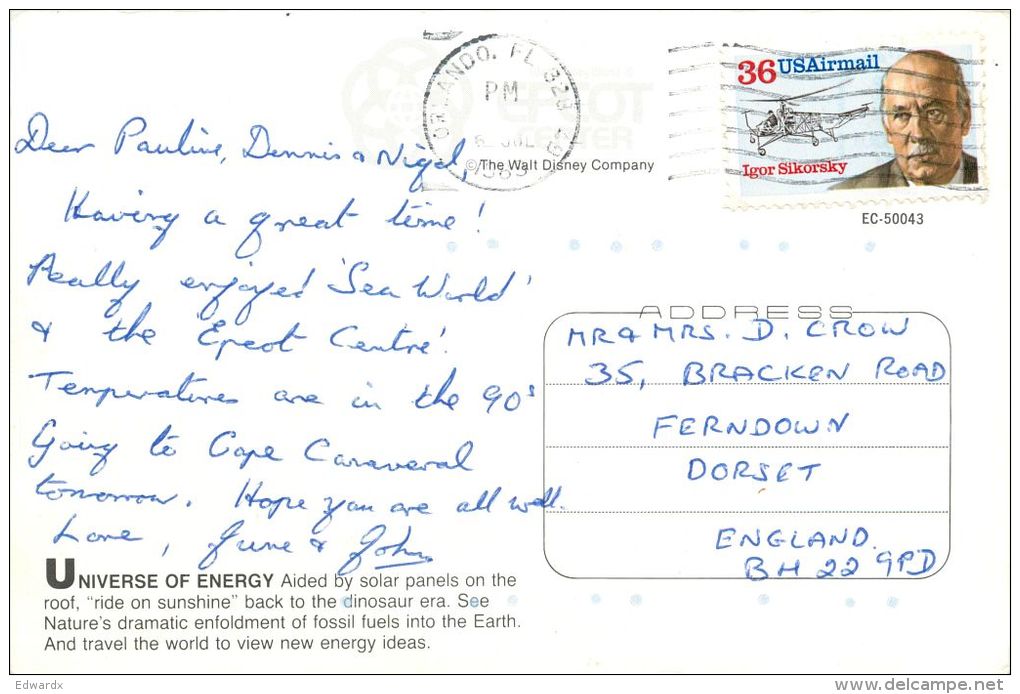 Dear Pauline, Dennis & Nigel,
Having a great time!
Really enjoyed 'Sea World'
& the 'Epcot Centre'.
Temperatures are in the 90s
Going to Cape Caraveral
tomorrow. Hope you are all well.
Love, June & John
UNIVERSE OF ENERGY Aided by solar panels on the
roof, "ride on sunshine" back to the dinosaur era. See
Nature's dramatic enfoldment of fossil fuels into the Earth.
And travel the world to view new energy ideas.
EPCOT
CENTER
©The Walt Disney Company
ORLANDO, FL 328
PM
36 USAirmail
Igor Sikorsky
EC-50043
ADDRESS
MR & MRS. D. CROW
35, BRACKEN ROAD
FERNDOWN
DORSET
ENGLAND.
BH22 9PD
Edwardx
delcampe.net